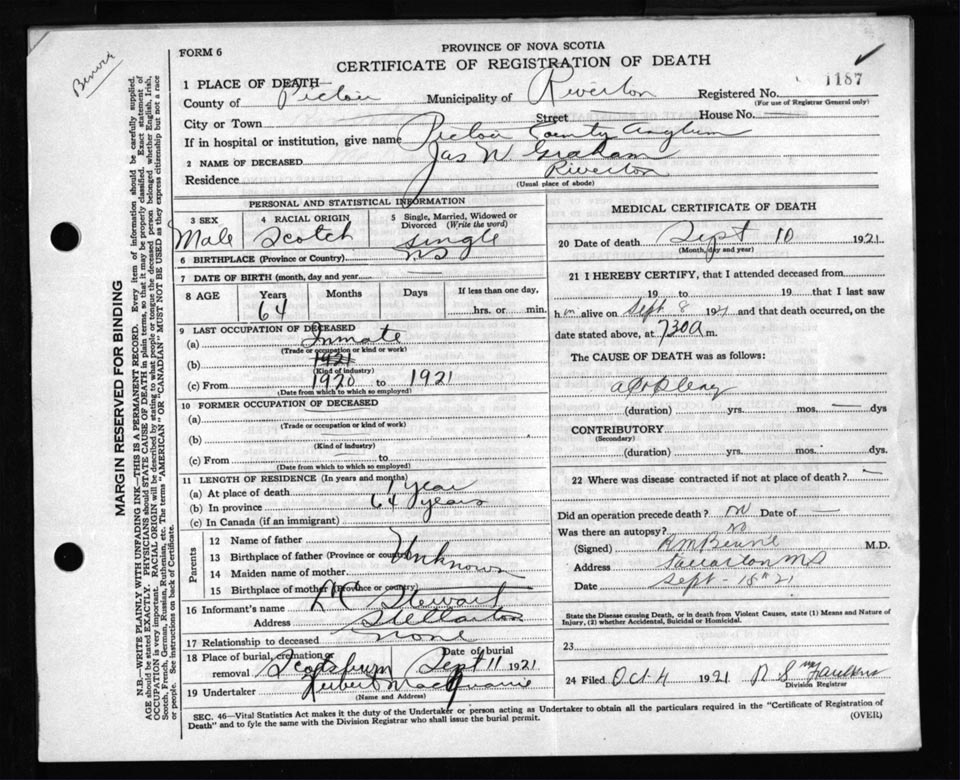 Berwick
FORM 6
PROVINCE OF NOVA SCOTIA
CERTIFICATE OF REGISTRATION OF DEATH
1187
1 PLACE OF DEATH
County of Pictou Municipality of Riverton Registered No.
(For use of Registrar General only)
City or Town Street House No.
If in hospital or institution, give name Pictou County Asylum
2 NAME OF DECEASED Jas W Graham
Residence Riverton
(Usual place of abode)
PERSONAL AND STATISTICAL INFORMATION
3 SEX 4 RACIAL ORIGIN 5 Single, Married, Widowed or Divorced (Write the word)
Male Scotch Single
6 BIRTHPLACE (Province or Country) NS
7 DATE OF BIRTH (month, day and year)
8 AGE Years Months Days If less than one day,
64 hrs. or min.
9 LAST OCCUPATION OF DECEASED
(a) Inmate
(Trade or occupation or kind or work)
(b) 1921
(Kind of industry)
(c) From 1920 to 1921
(Date from which to which so employed)
10 FORMER OCCUPATION OF DECEASED
(a)
(Trade or occupation or kind of work)
(b)
(Kind of industry)
(c) From to
(Date from which to which so employed)
11 LENGTH OF RESIDENCE (In years and months)
(a) At place of death 1 year
(b) In province 64 years
(c) In Canada (if an immigrant)
Parents
12 Name of father
13 Birthplace of father (Province or country) Unknown
14 Maiden name of mother
15 Birthplace of mother (Province or country)
16 Informant's name Stewart
Address Stellarton
17 Relationship to deceased none
18 Place of burial, cremation or removal Scotsburn Date of burial Sept 11 1921
19 Undertaker
(Name and Address)
MEDICAL CERTIFICATE OF DEATH
20 Date of death Sept 10 1921
(Month, day and year)
21 I HEREBY CERTIFY, that I attended deceased from
19 to 19 that I last saw
h m alive on Sept 8 1921 and that death occurred, on
the date stated above, at 730 a m.
The CAUSE OF DEATH was as follows:
(duration) yrs. mos. dys
CONTRIBUTORY
(Secondary)
(duration) yrs. mos. dys.
22 Where was disease contracted if not at place of death?
Did an operation precede death? no Date of
Was there an autopsy? no
(Signed) M.D.
Address NS
Date Sept - 15th 21
State the Disease causing Death, or in death from Violent Causes, state (1) Means and Nature of Injury, (2) whether Accidental, Suicidal or Homicidal.
23
24 Filed Oct 4 1921
Division Registrar
SEC. 46—Vital Statistics Act makes it the duty of the Undertaker or person acting as Undertaker to obtain all the particulars required in the "Certificate of Registration of
Death" and to fyle the same with the Division Registrar who shall issue the burial permit.
(OVER)
MARGIN RESERVED FOR BINDING
N.B.—WRITE PLAINLY WITH UNFADING INK—THIS IS A PERMANENT RECORD. Every item of information should be carefully supplied.
AGE should be stated EXACTLY. PHYSICIANS should STATE CAUSE OF DEATH in plain terms, so that it may be properly classified. Exact statement of
OCCUPATION is very important. RACIAL ORIGIN will be described by stating to what people or tongue the deceased person belonged whether English, Irish,
Scotch, French, German, Russian, Ruthenian, etc. The terms "AMERICAN" OR "CANADIAN" MUST NOT BE USED as they express citizenship but not a race
or people. See instructions on back of Certificate.